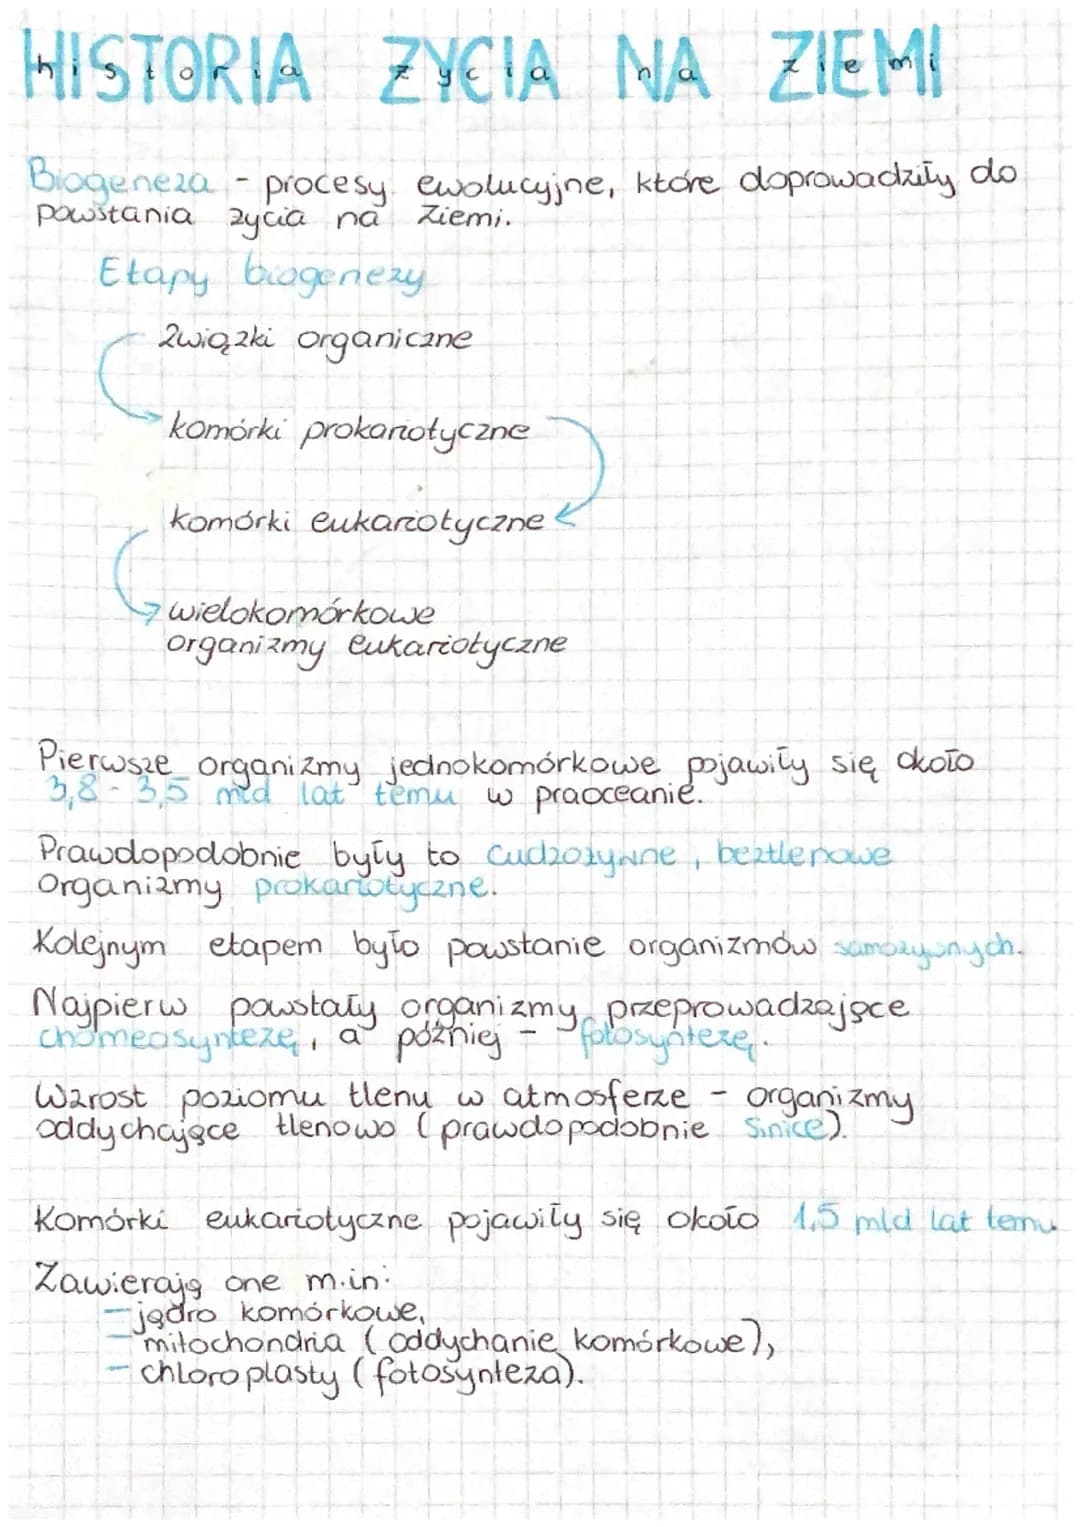 HISTORIA ŻYCIA NA ZIEMI
historia życia na ziemi
Biogeneza - procesy ewolucyjne, które doprowadziły do
powstania życia na Ziemi.
Etapy biogenezy
Związki organiczne
komórki prokariotyczne
komórki eukariotyczne
wielokomórkowe
organizmy eukariotyczne
Pierwsze organizmy jednokomórkowe pojawiły się około
3,8 - 3,5 mld lat temu w praoceanie.
Prawdopodobnie były to cudzożywne, beztlenowe
Organizmy prokariotyczne.
Kolejnym etapem było powstanie organizmów samożywnych.
Najpierw powstały organizmy przeprowadzające
chomeosyntezę, a później - fotosyntezę.
Wzrost poziomu tlenu w atmosferze - organizmy
oddychające tlenowo (prawdopodobnie Sinice).
Komórki eukariotyczne pojawiły się około 1,5 mld lat temu.
Zawierają one m.in:
- jądro komórkowe,
- mitochondria (oddychanie komórkowe),
- chloroplasty (fotosynteza).